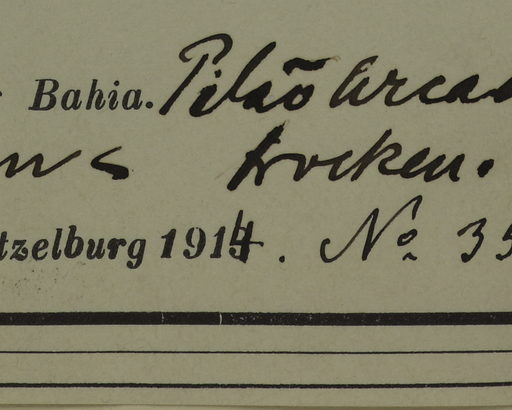 Bahia. Pilão Arcas
ns trocken.
tzelburg 1914. No. 35